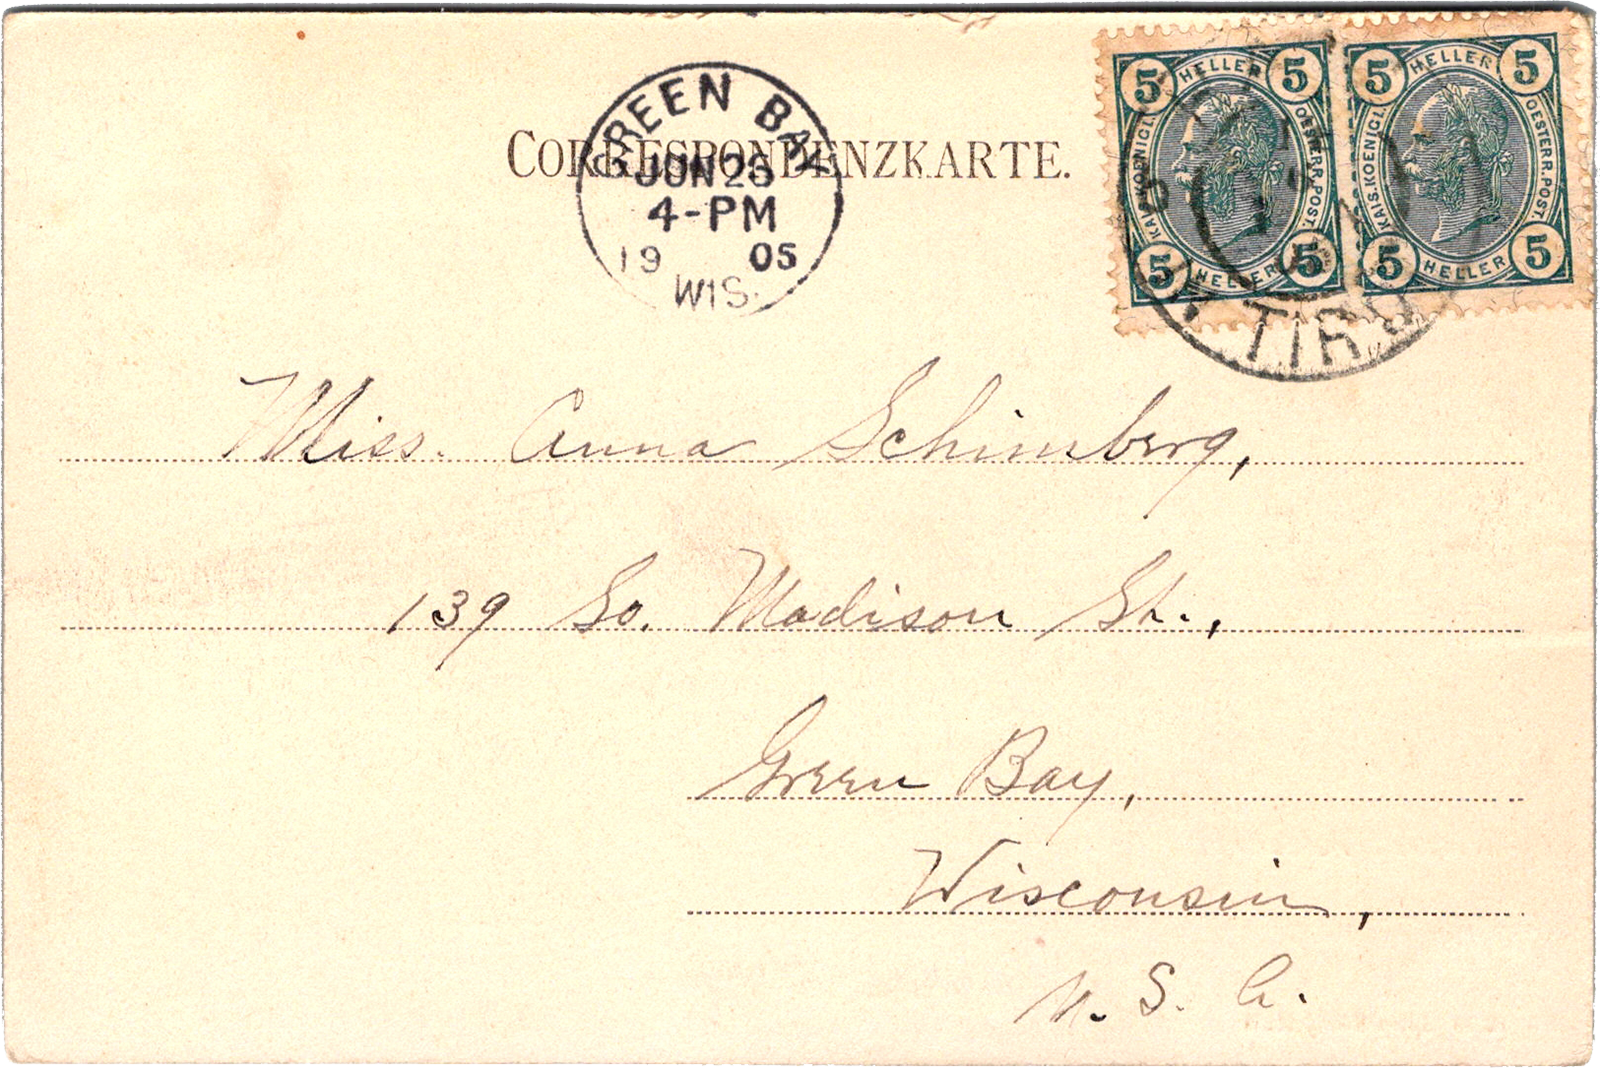 GREEN BAY
JUN 25
4-PM
19 05
WIS.
CORRESPONDENZKARTE.
5 HELLER 5
KAIS. KOENIGL. OESTERR. POST.
5 HELLER 5
5 HELLER 5
KAIS. KOENIGL. OESTERR. POST.
5 HELLER 5
Miss. Anna Schimberg,
139 So. Madison St.,
Green Bay,
Wisconsin,
U. S. A.